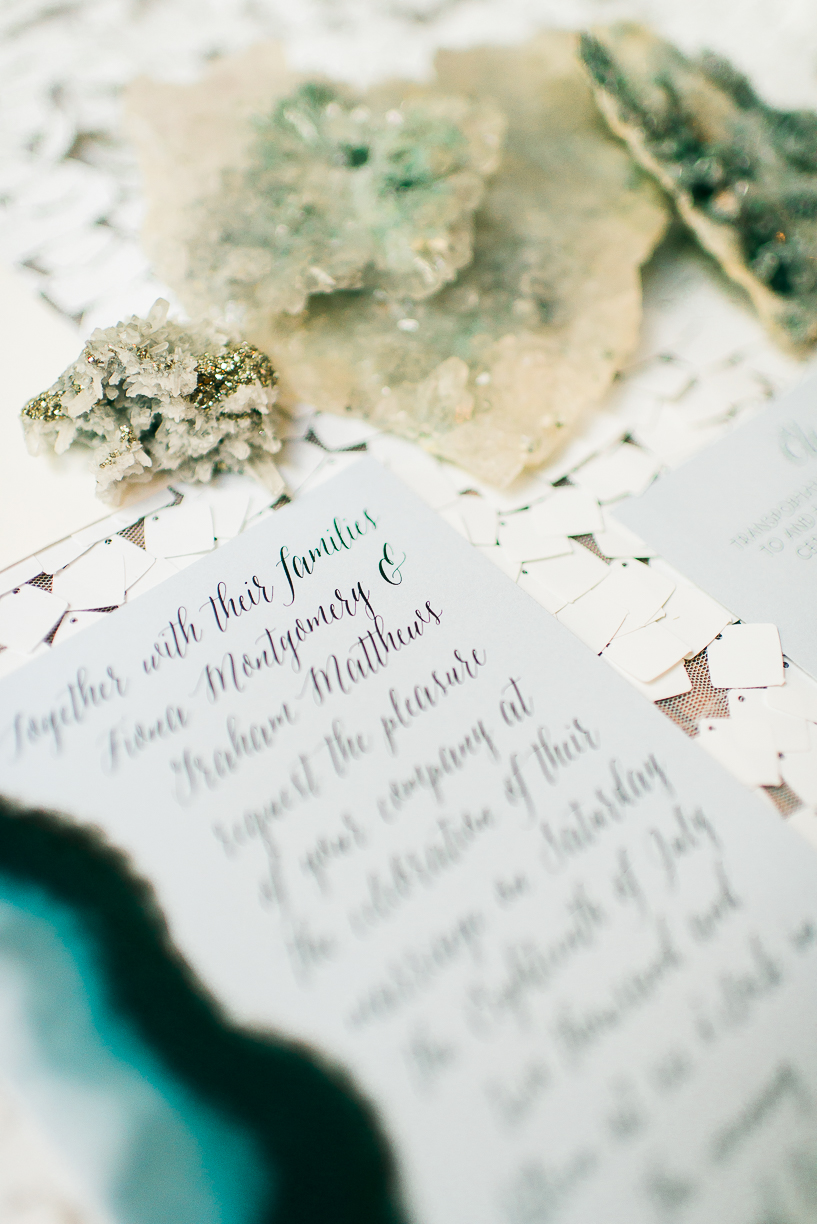 Together with their families
Fiona Montgomery &
Graham Matthews
request the pleasure
of your company at
the celebration of their
marriage on Saturday
the Eighteenth of July
two thousand and
TRANSPORT
TO AND
CE